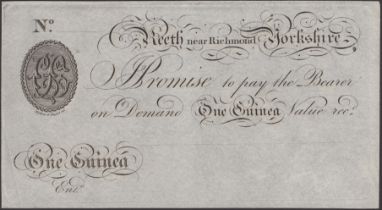 No.
Reeth near Richmond Yorkshire
I Promise to pay the Bearer
on Demand One Guinea Value rec.
One Guinea
Ent.